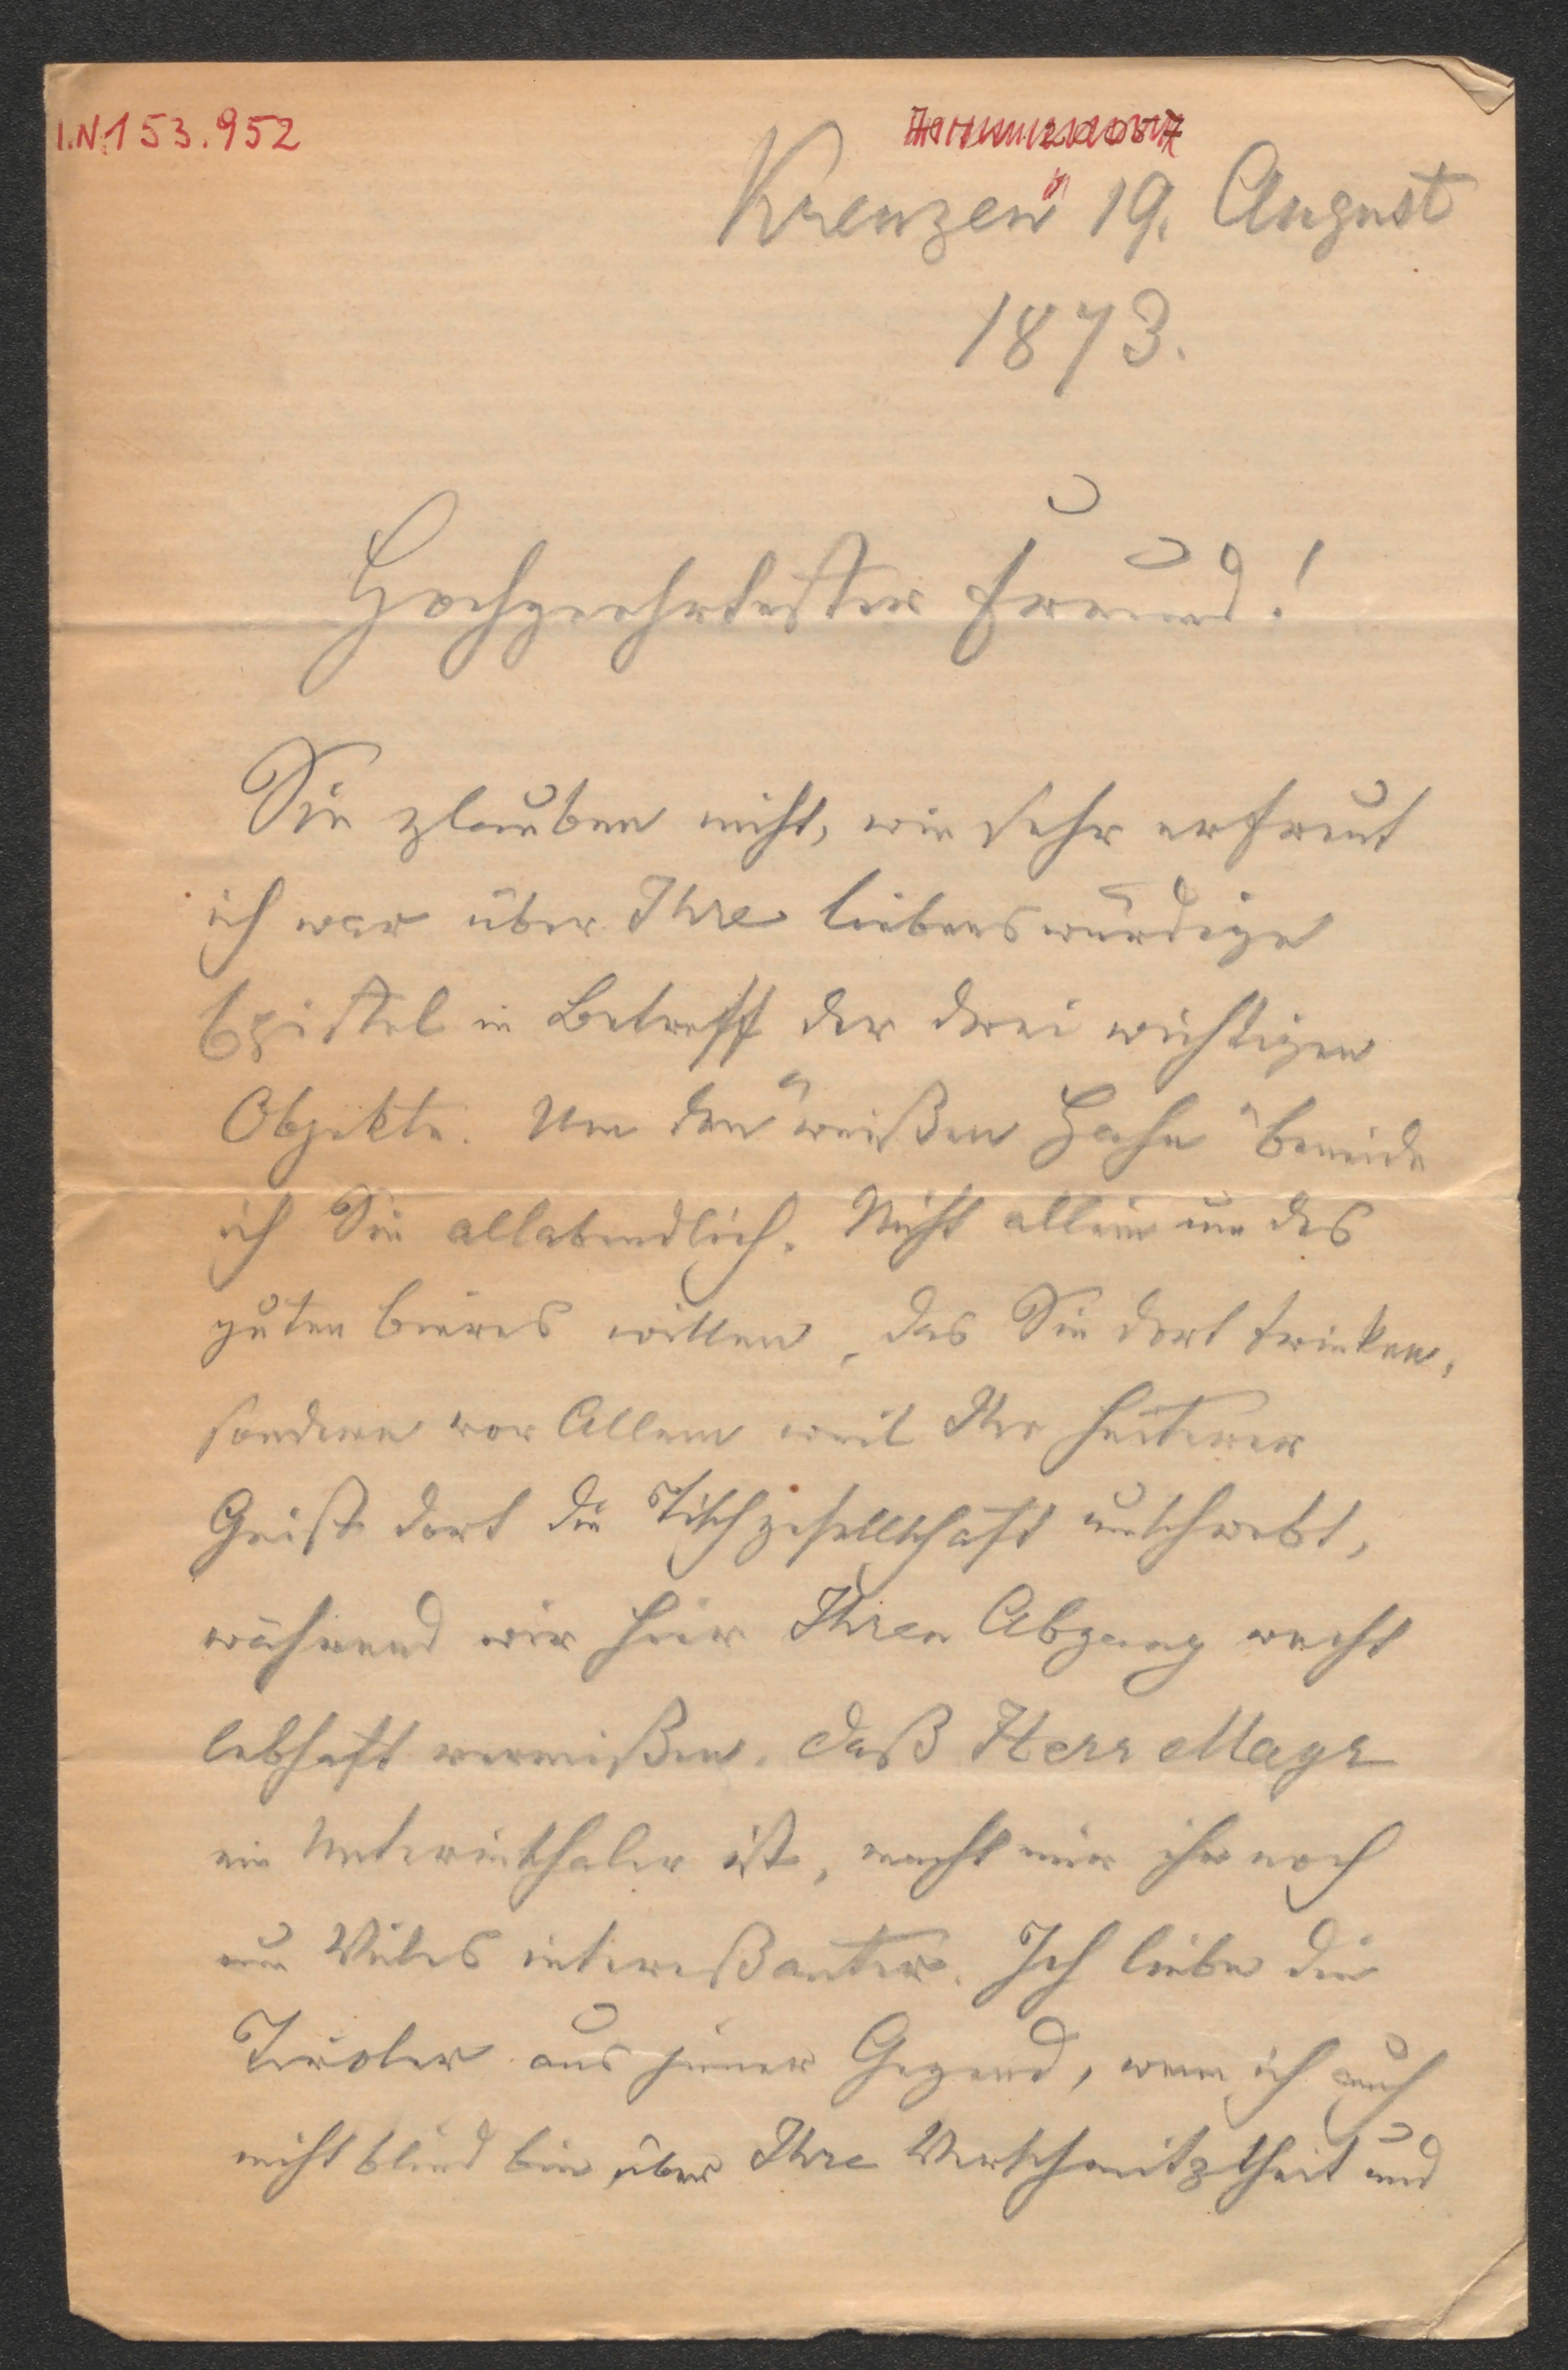 I.N. 153.952
Kreuzen 19. August
1873.
Hochgeehrtester Freund!
Sie glauben nicht, wie sehr erfreut
ich war über Ihre liebenswürdige
Epistel in Betreff der drei wichtigen
Objekte. Um den "weißen Hahn" beneide
ich Sie allabendlich. Nicht allein um des
guten Bieres willen, das Sie dort trinken,
sondern vor Allem weil Ihr heiterer
Geist dort die Tischgesellschaft umschwebt,
während wir hier Ihren Abgang recht
lebhaft vermißen. Daß Herr Mayr
ein Unterinthaler ist, macht mir ihn noch
um Vieles intereßanter. Ich liebe die
Tiroler aus jener Gegend, wenn ich auch
nicht blind bin über Ihre Verschmitztheit und